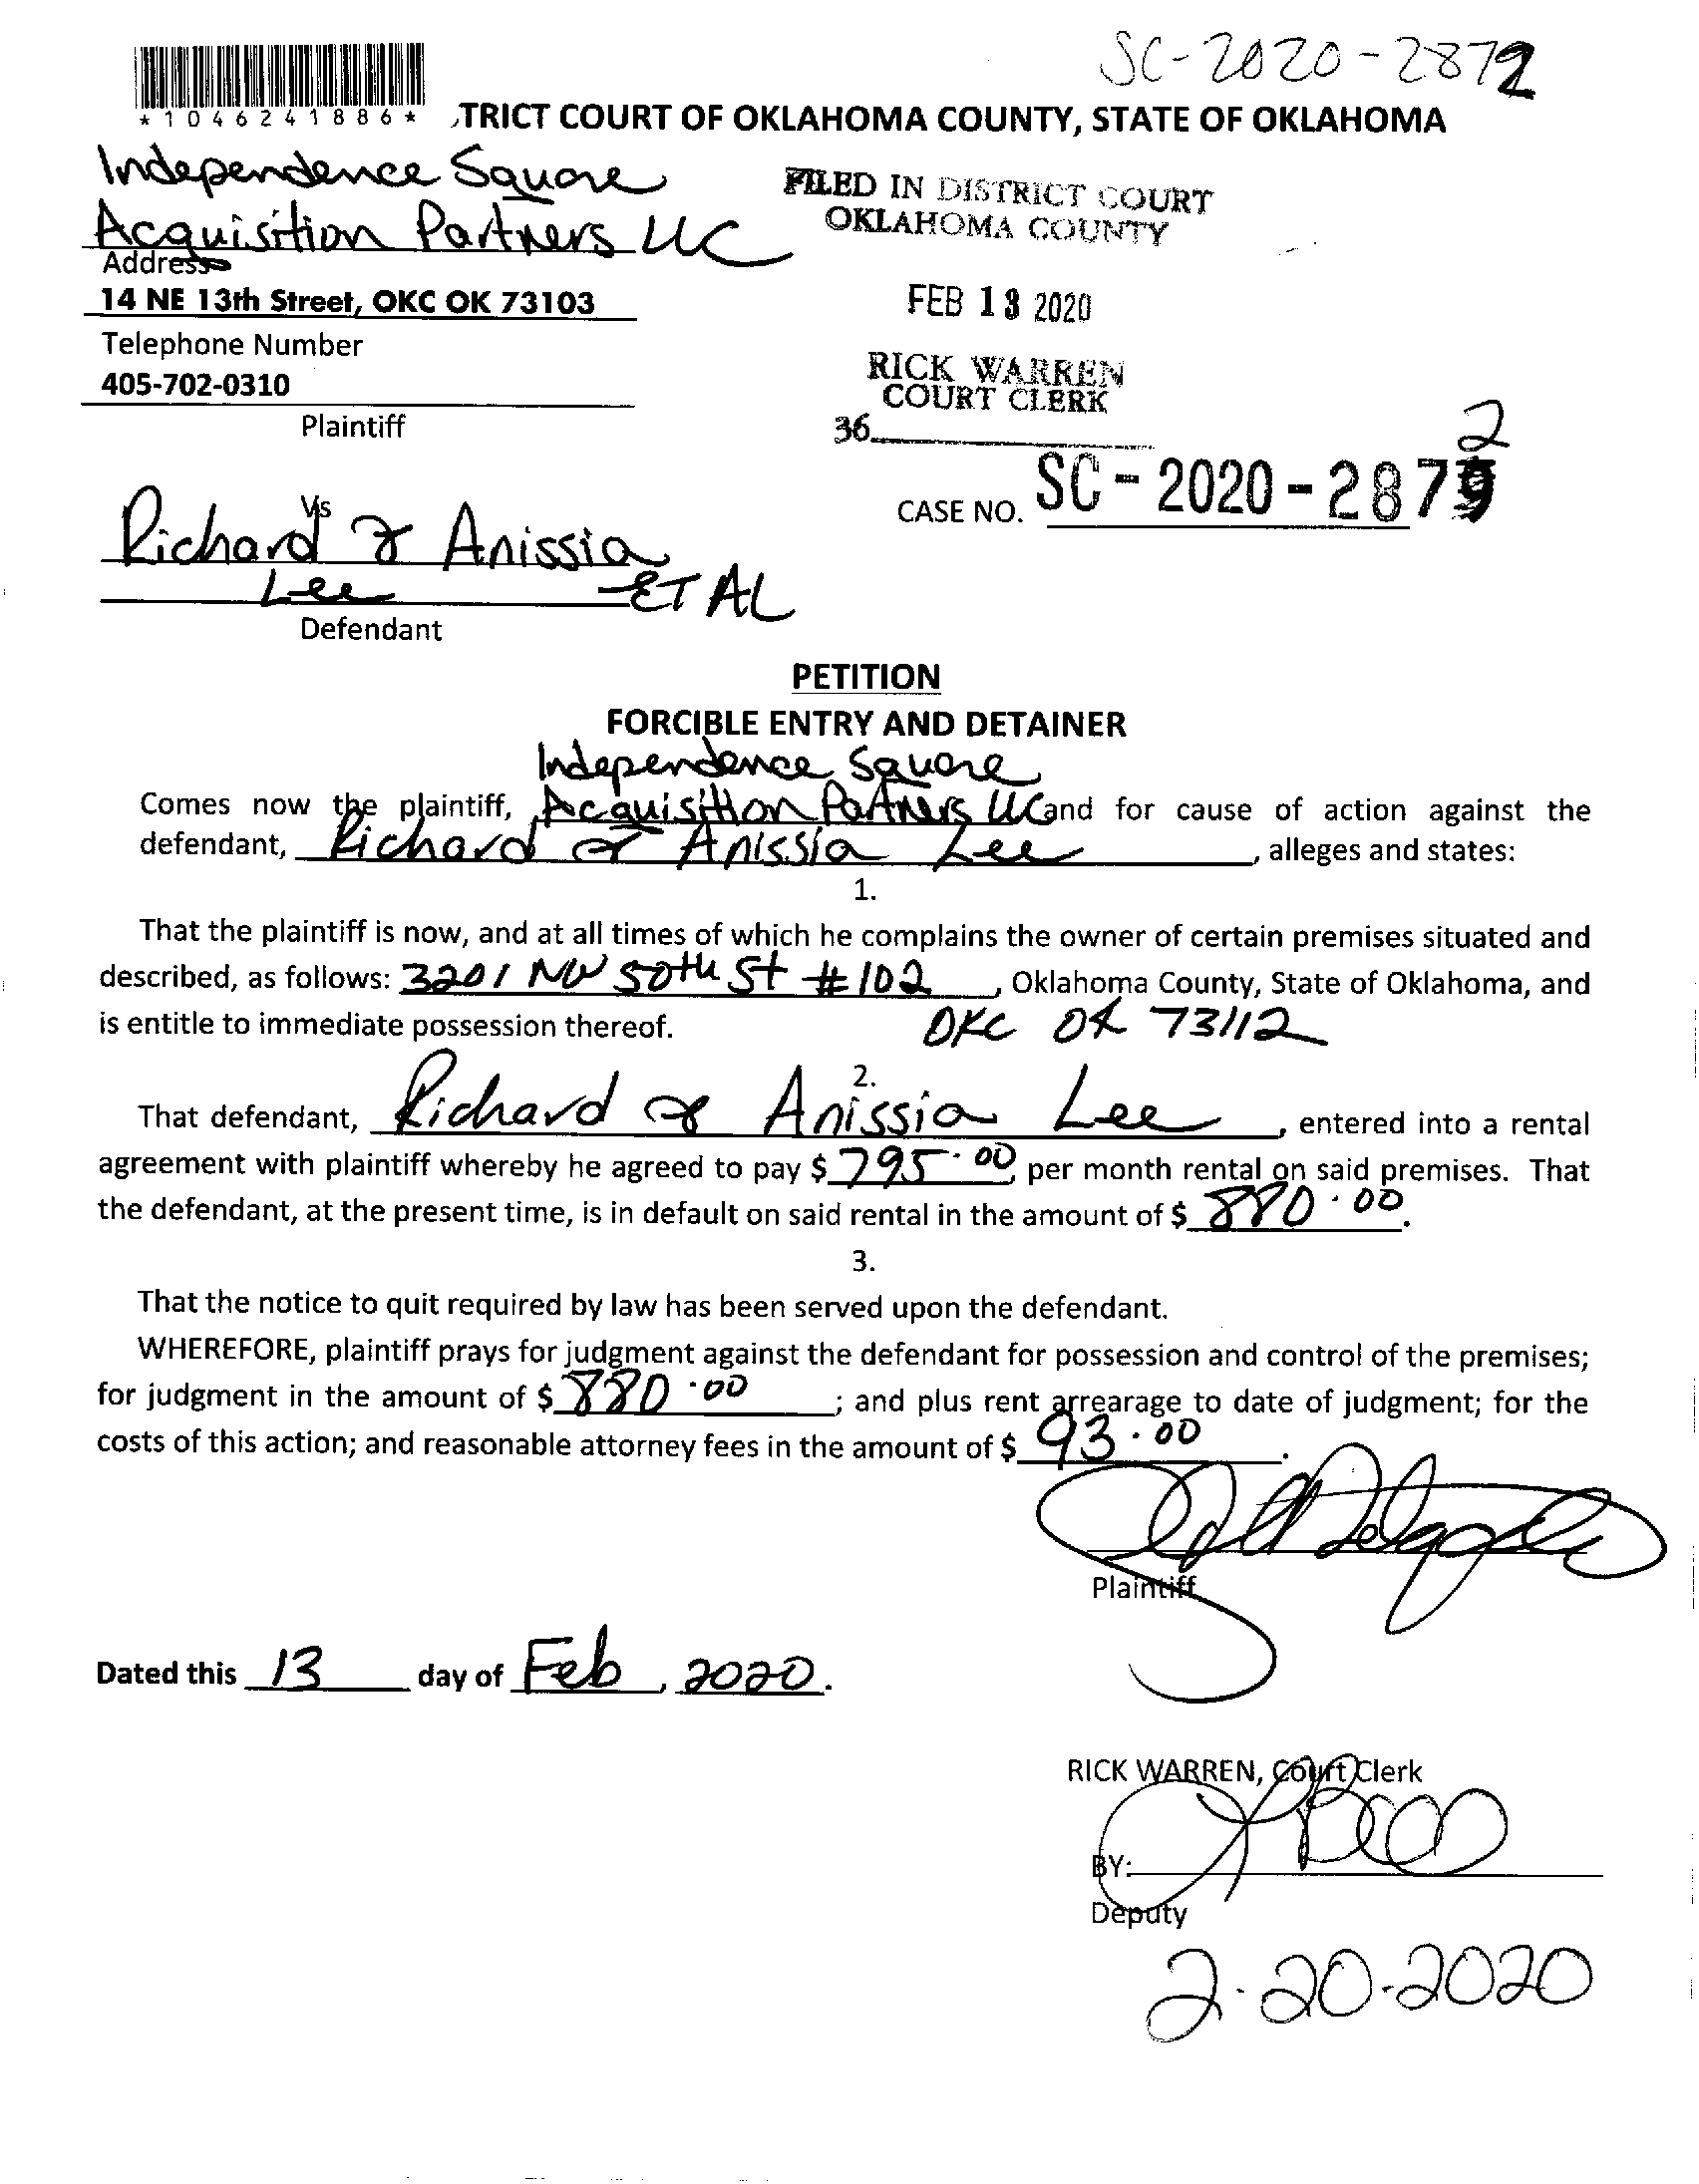 SC-2020-2872
*1046241886*
TRICT COURT OF OKLAHOMA COUNTY, STATE OF OKLAHOMA
Independence Square
Acquisition Partners LLC
Address
14 NE 13th Street, OKC OK 73103
Telephone Number
405-702-0310
Plaintiff
FILED IN DISTRICT COURT
OKLAHOMA COUNTY
FEB 13 2020
RICK WARREN
COURT CLERK
36
2
CASE NO. SC-2020-287
Vs
Richard & Anissia
Lee ET AL
Defendant
PETITION
FORCIBLE ENTRY AND DETAINER
Independence Square
Comes now the plaintiff, Acquisition Partners LLC and for cause of action against the
defendant, Richard & Anissia Lee, alleges and states:
1.
That the plaintiff is now, and at all times of which he complains the owner of certain premises situated and
described, as follows: 3201 NW 50th St #102, Oklahoma County, State of Oklahoma, and
is entitle to immediate possession thereof. OKC OK 73112
2.
That defendant, Richard & Anissia Lee, entered into a rental
agreement with plaintiff whereby he agreed to pay $ 795.00, per month rental on said premises. That
the defendant, at the present time, is in default on said rental in the amount of $ 880.00.
3.
That the notice to quit required by law has been served upon the defendant.
WHEREFORE, plaintiff prays for judgment against the defendant for possession and control of the premises;
for judgment in the amount of $ 880.00; and plus rent arrearage to date of judgment; for the
costs of this action; and reasonable attorney fees in the amount of $ 93.00.
Plaintiff
Dated this 13 day of Feb, 2020.
RICK WARREN, Court Clerk
BY:
Deputy
2-20-2020